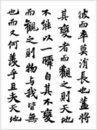 彼而卒莫消長也蓋將
其變者而觀之則天地
不能以一瞬自其不變
而觀之則物與我皆無
也而又何羨乎且夫天地